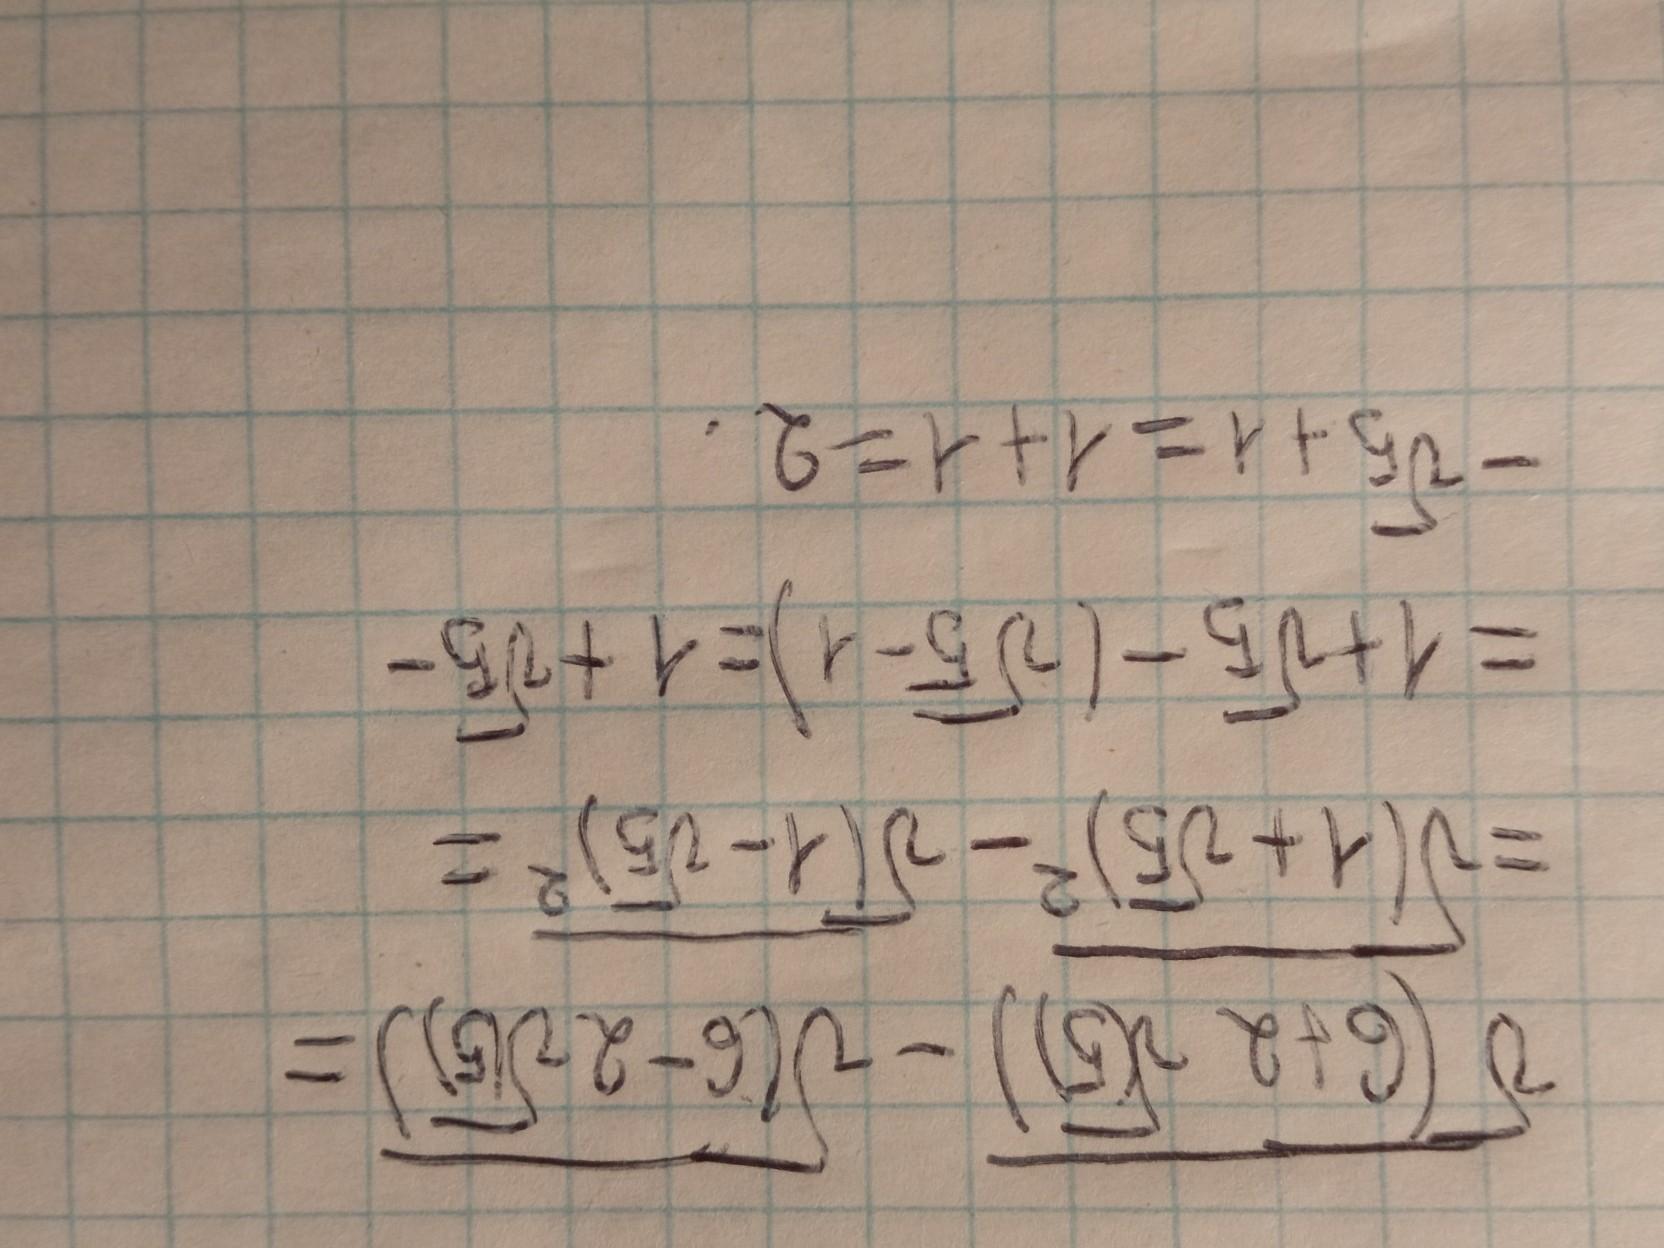 √(6+2√(5)) - √(6-2√(5)) =
= √(1+√5)² - √(1-√5)² =
= 1+√5 - (√5-1) = 1+√5 -
- √5+1 = 1+1 = 2.